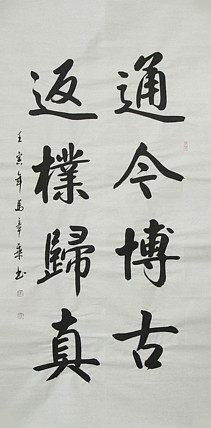 通今博古
返樸歸真
壬寅年馬章乘书